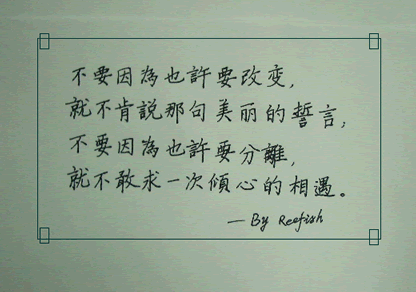 不要因為也許要改变,
就不肯説那句美丽的誓言,
不要因為也許要分離,
就不敢求一次傾心的相遇。
— By Reefish